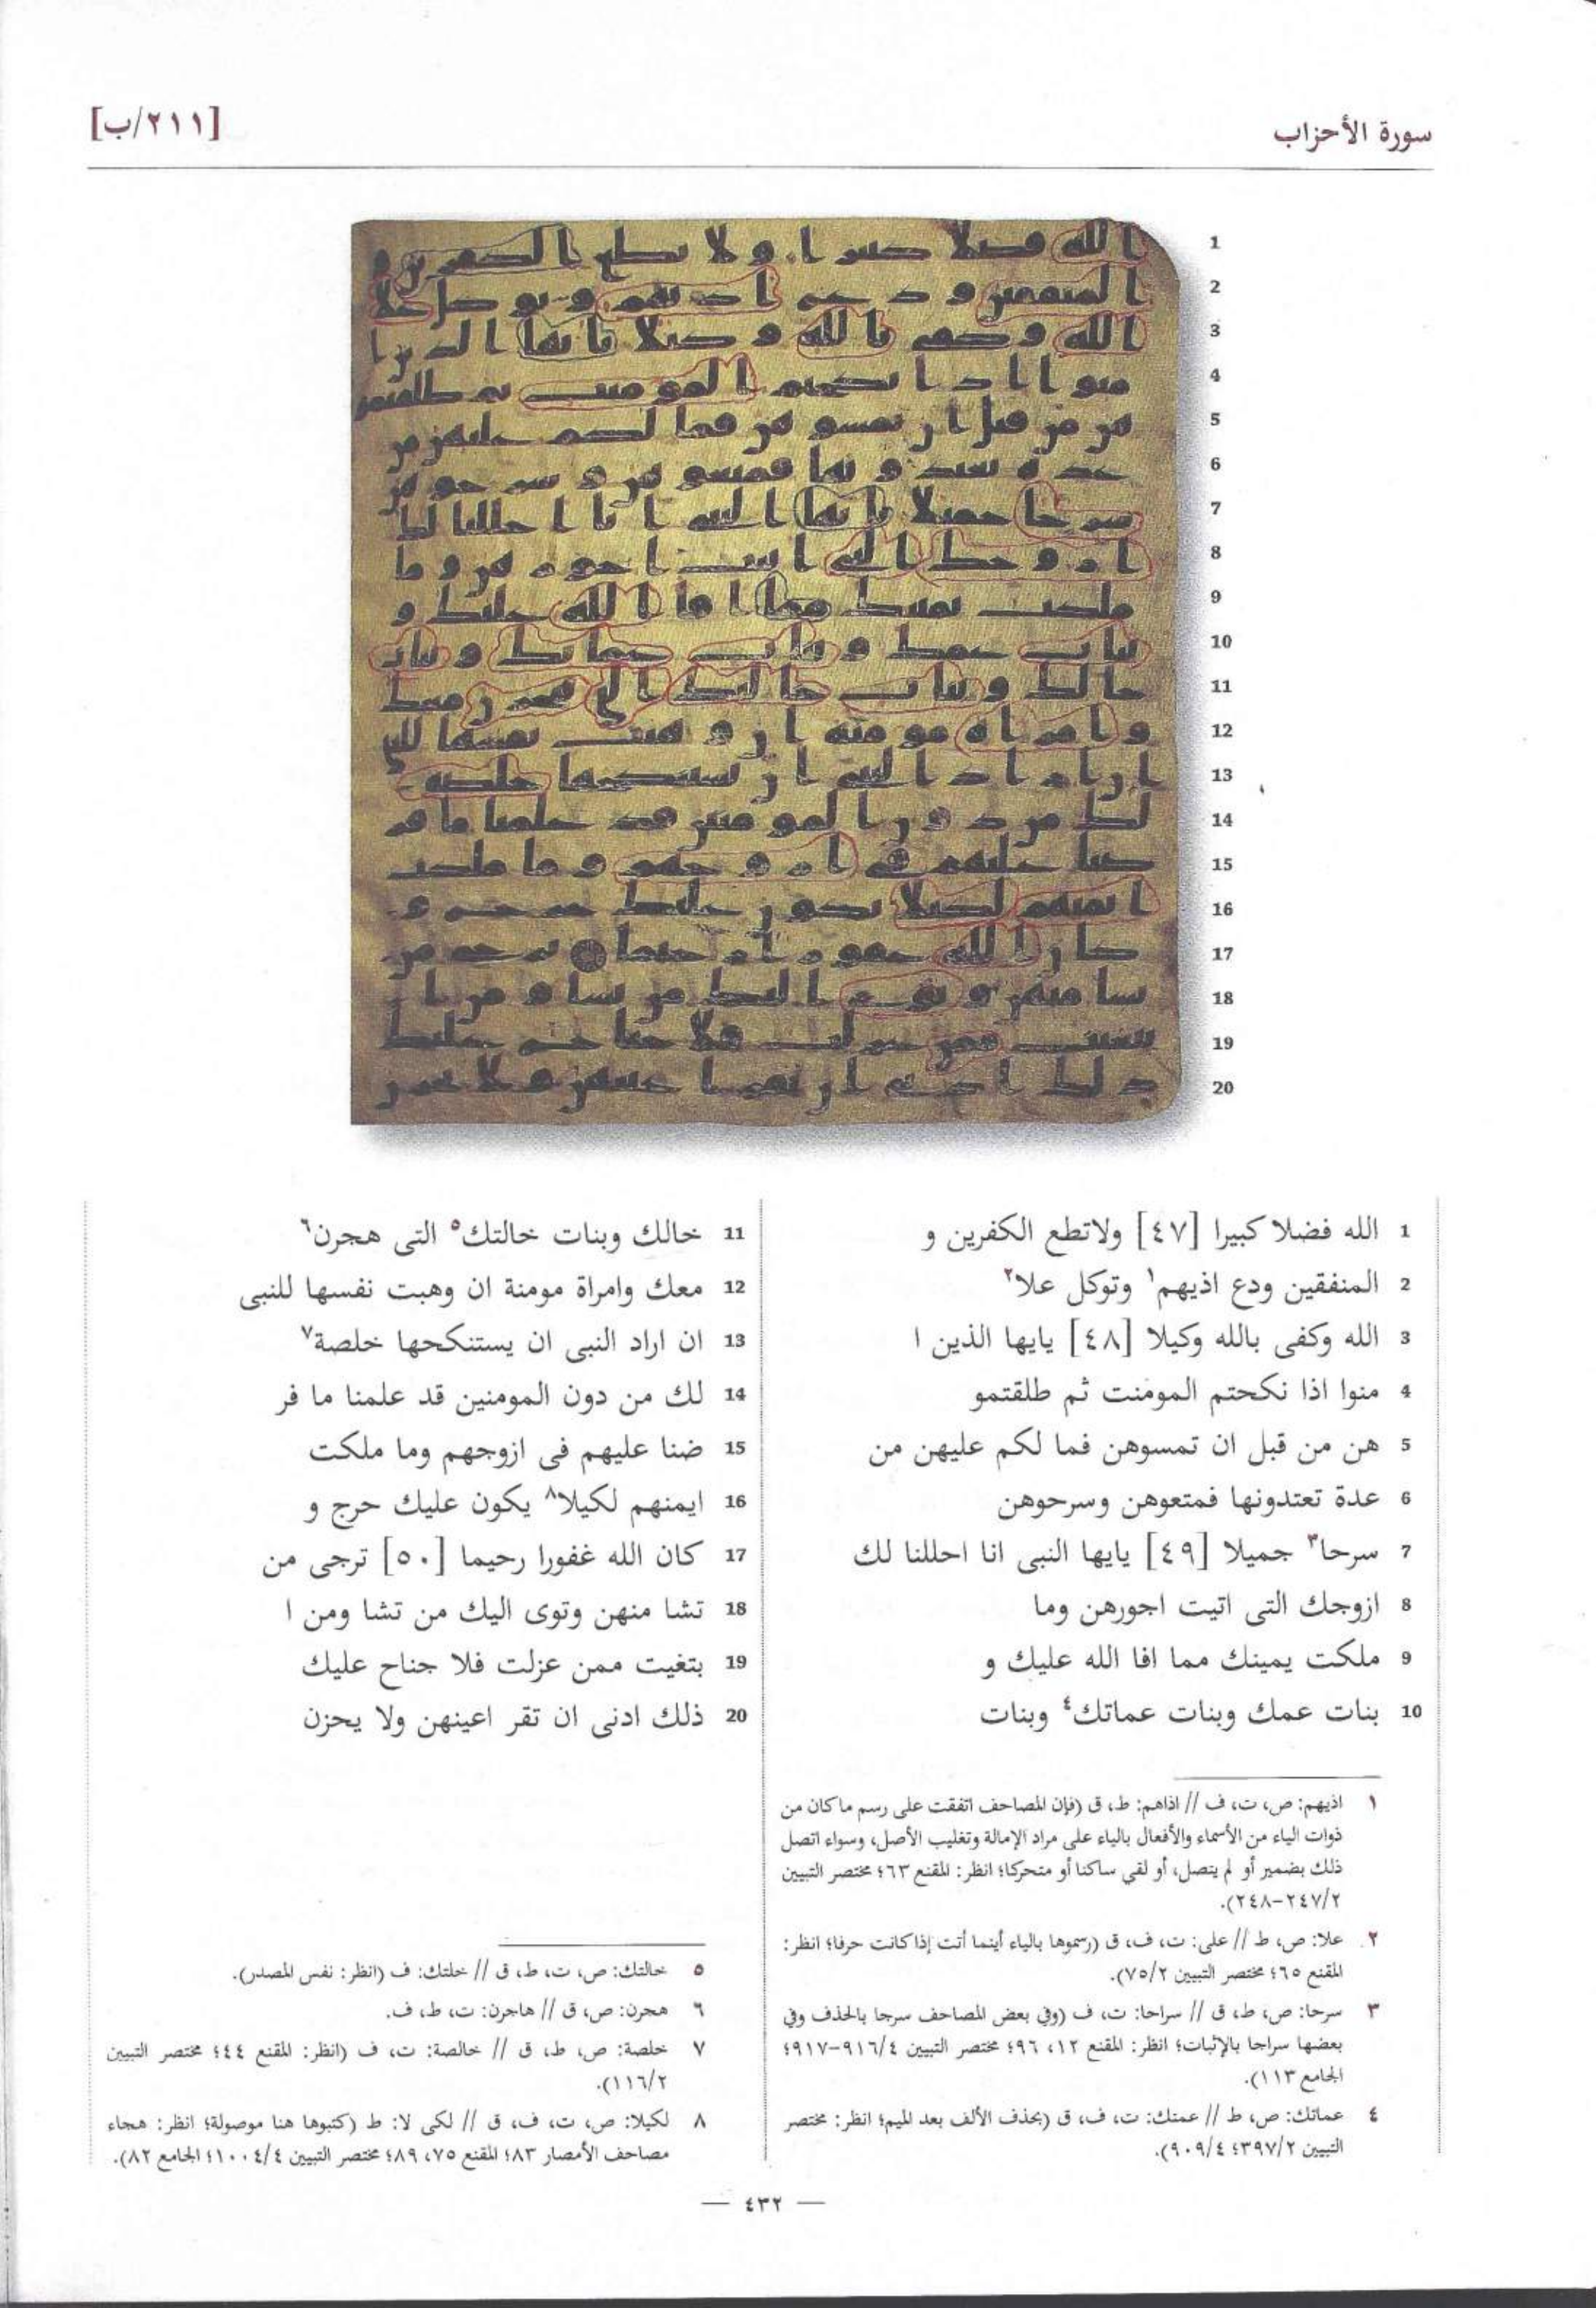 سورة الأحزاب
[٢١١/ب]
1 الله فضلا كبيرا [٤٧] ولاتطع الكفرين و
2 المنفقين ودع اذيهم١ وتوكل علا٢
3 الله وكفى بالله وكيلا [٤٨] يايها الذين ا
4 منوا اذا نكحتم المومنت ثم طلقتمو
5 هن من قبل ان تمسوهن فما لكم عليهن من
6 عدة تعتدونها فمتعوهن وسرحوهن
7 سرحا٣ جميلا [٤٩] يايها النبى انا احللنا لك
8 ازوجك التى اتيت اجورهن وما
9 ملكت يمينك مما افا الله عليك و
10 بنات عمك وبنات عماتك٤ وبنات
11 خالك وبنات خالتك٥ التى هجرن٦
12 معك وامراة مومنة ان وهبت نفسها للنبى
13 ان اراد النبى ان يستنكحها خلصة٧
14 لك من دون المومنين قد علمنا ما فر
15 ضنا عليهم فى ازوجهم وما ملكت
16 ايمنهم لكيلا٨ يكون عليك حرج و
17 كان الله غفورا رحيما [٥٠] ترجى من
18 تشا منهن وتوى اليك من تشا ومن ا
19 بتغيت ممن عزلت فلا جناح عليك
20 ذلك ادنى ان تقر اعينهن ولا يحزن
١ اذيهم: ص، ت، ف // اذاهم: ط، ق (فإن المصاحف اتفقت على رسم ماكان من
ذوات الياء من الأسماء والأفعال بالياء على مراد الإمالة وتغليب الأصل، وسواء اتصل
ذلك بضمير أو لم يتصل، أو لقي ساكنا أو متحركا؛ انظر: المقنع ٦٣؛ مختصر التبيين
٢/٢٤٧-٢٤٨).
٢ علا: ص، ط // على: ت، ف، ق (رسموها بالياء أينما أتت إذاكانت حرفا؛ انظر:
المقنع ٦٥؛ مختصر التبيين ٢/٧٥).
٣ سرحا: ص، ط، ق // سراحا: ت، ف (وفي بعض المصاحف سرجا بالحذف وفي
بعضها سراجا بالإثبات؛ انظر: المقنع ١٢، ٩٦؛ مختصر التبيين ٤/٩١٦-٩١٧؛
الجامع ١١٣).
٤ عماتك: ص، ط // عمتك: ت، ف، ق (بحذف الألف بعد الميم؛ انظر: مختصر
التبيين ٢/٣٩٧؛ ٤/٩٠٩).
٥ خالتك: ص، ت، ط، ق // خلتك: ف (انظر: نفس المصدر).
٦ هجرن: ص، ق // هاجرن: ت، ط، ف.
٧ خلصة: ص، ط، ق // خالصة: ت، ف (انظر: المقنع ٤٤؛ مختصر التبيين
٢/١١٦).
٨ لكيلا: ص، ت، ف، ق // لكى لا: ط (كتبوها هنا موصولة؛ انظر: هجاء
مصاحف الأمصار ٨٣؛ المقنع ٧٥، ٨٩؛ مختصر التبيين ٤/١٠٠٤؛ الجامع ٨٢).
— ٤٣٢ —